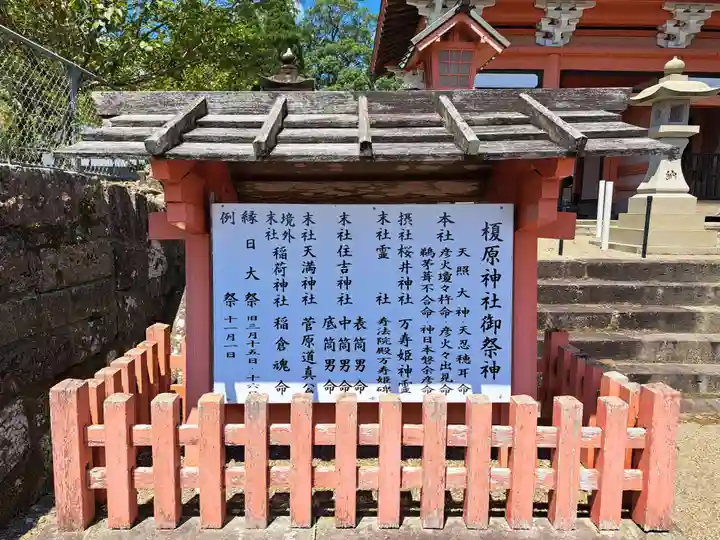 榎原神社御祭神
天照大神 天忍穂耳命
本社 彦火瓊々杵命 彦火々出見命
鵜茅葺不合命 神日本磐余彦命
摂社桜井神社 万寿姫神霊
末社霊社 寿法院殿万寿姫
末社住吉神社 表筒男命
中筒男命
底筒男命
末社天満神社 菅原道真公
境外
末社 稲荷神社 稲倉魂命
縁日大祭 旧三月十五日、十六
例祭 十一月一日
納